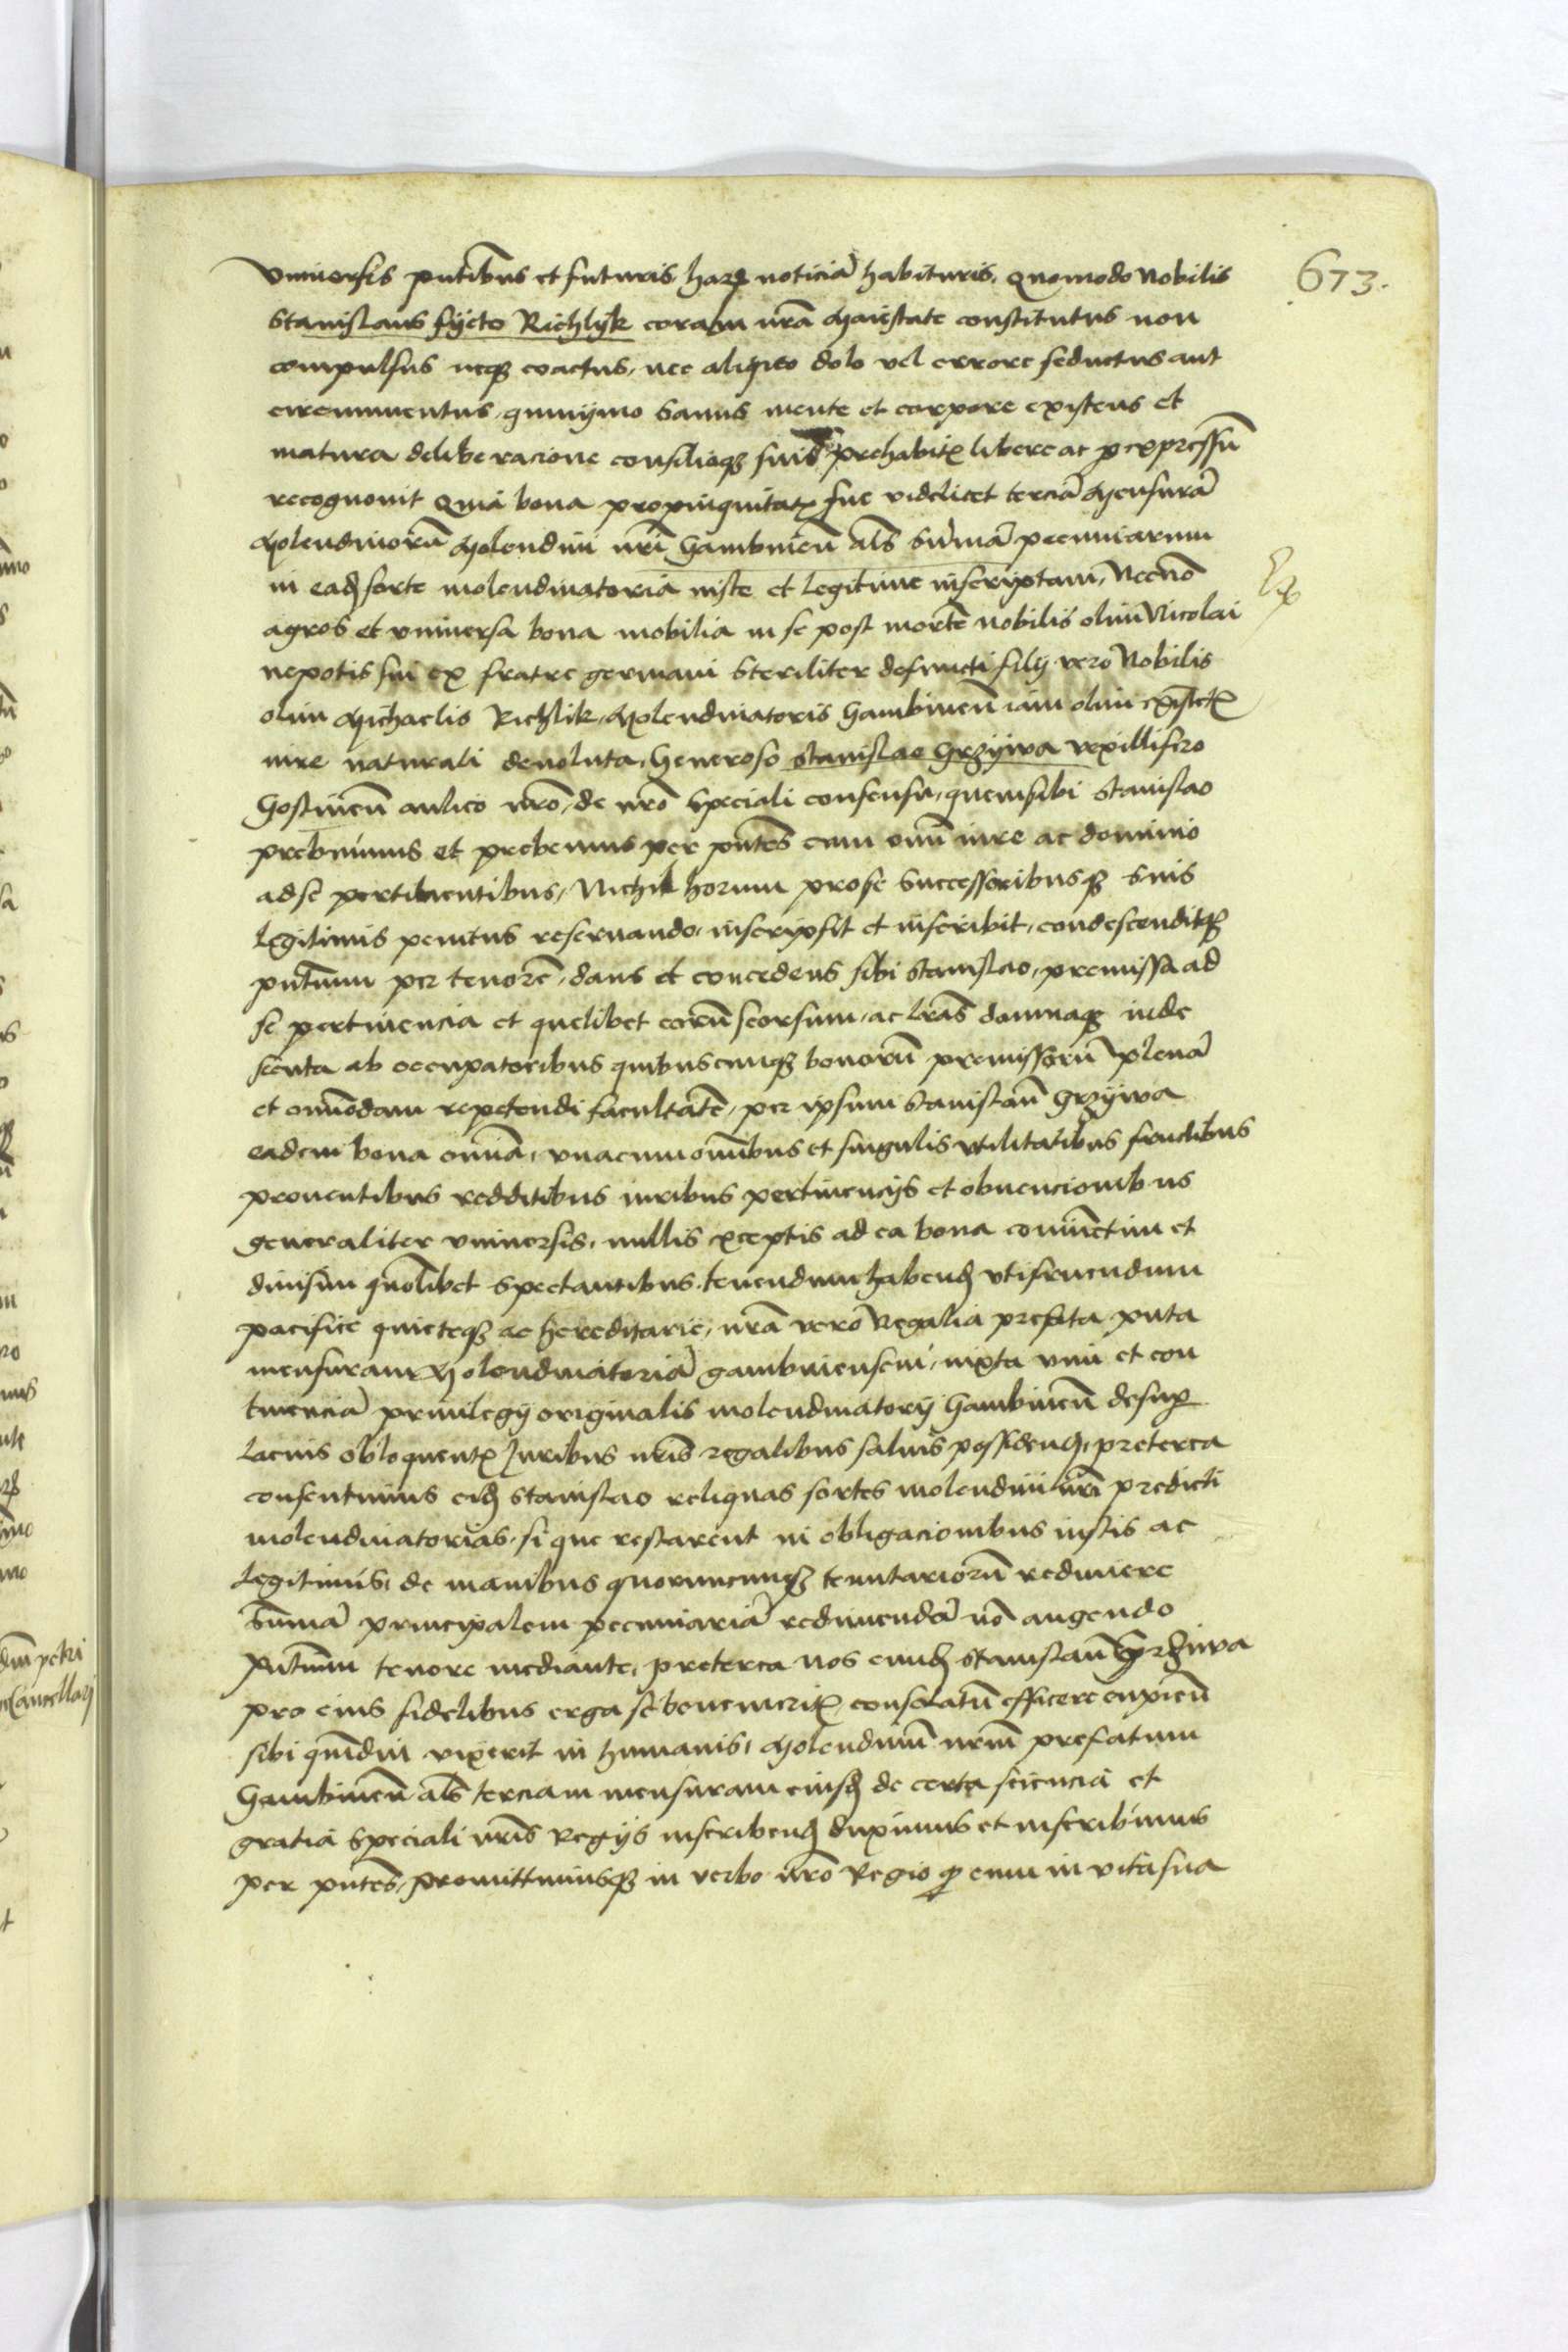 673.
Vniuersis pntibus et futuris harꝫ noticiā habituris. Quomodo Nobilis
Stanislaus ficto Richlyk coram nrā Maiestate constitutus non
compulsus neqꝫ coactus, nec aliquo dolo vel errore seductus aut
circumuentus, quinymo Sanus mente et corpore existens et
matura deliberacione consilioqꝫ suis prehabitꝭ libere ac ꝑ expressū
recognouit Quia bona propinquitatꝭ sue videlicet terciā Mensurā
Molendinorū Molendini nrī Gambineñ als Sūmā pecuniarum
in eadꝫ sorte molendinatoria iuste et legitime inscriptam, Necnō
agros et vniuersa bona mobilia in se post mortē nobilis olim Nicolai
nepotis sui ex fratre germani steriliter defuncti filij vero Nobilis
olim Michaelis Richlik, Molendinatoris Gambineñ iam olim existētꝭ
iure naturali deuoluta, Generoso Stanislao Grzywa vexillifero
Gostineñ aulico nrō, de nrō Speciali consensu, quem sibi Stanislao
prebuimus et prebemus per pntes cum omī iure ac dominio
ad se pertinentibus, Nichil horum pro se Successoribusqꝫ Suis
legitimis penitus reseruando, inscripsit et inscribit, condescenditqꝫ
pntium per tenorē, dans et concedens sibi Stanislao, premissa ad
se pertinencia et quelibet eorū seorsum, ac lrās damnaqꝫ inde
secuta ab occupatoribus quibuscunqꝫ bonorū premissorū plenā
et omīmodam repetendi facultatē, per ipsum Stanislaū Grzywa
eadem bona omīa, vnacum omībus et singulis vtilitatibus fructibus
prouentibus redditibus iuribus pertinencijs et obuencionibus
generaliter vniuersis, nullis exceptis ad ea bona coniūctim et
diuisim quōlibet spectantibus, tenendum habendꝫ vtifruendum
pacifice quieteqꝫ ac hereditarie, nrā vero Regalia prefata puta
mensuram Molendinatoriā gambinensem, iuxta vim et con
tinenciā priuilegij originalis molendinatorij Gambineñ desuꝑ
lacius obloquentꝭ Juribus nrīs regalibus saluis possidendꝫ, preterea
consentimus eidꝫ Stanislao reliquas sortes molendini nrī predicti
molendinatorias, si que restarent in obligacionibus iustis ac
legitimis, de manibus quorumcunqꝫ tenutariorū redimere
Sūmā principalem pecuniariā redimendā nō augendo
pntium tenore mediante, preterea nos eundꝫ Stanislaū Grzywa
pro eius fidelibus erga se benemeritꝭ, consolatū efficere cupieñ
sibi quādiu vixerit in humanis, Molendinū nrūm prefatum
Gambineñ als terciam mensuram eiusdꝫ de certa sciencia et
gratia speciali nrīs Regijs inscribendꝫ duximus et inscribimus
per pntes, promittimusqꝫ in verbo nrō Regio ꝙ eum in vita sua